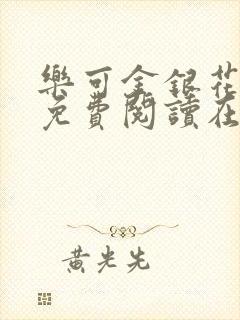 樂可金銀花
免費閱讀在
黃光先